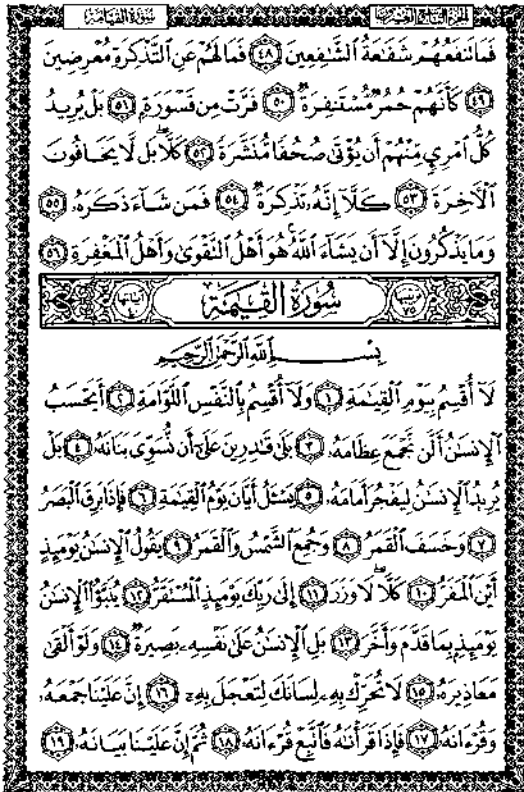 سُورَةُ القِيَامَةِ الجزء التاسع والعشرون
فَمَا تَنفَعُهُمْ شَفَٰعَةُ ٱلشَّٰفِعِينَ ٤٨ فَمَا لَهُمْ عَنِ ٱلتَّذْكِرَةِ مُعْرِضِينَ
٤٩ كَأَنَّهُمْ حُمُرٌ مُّسْتَنفِرَةٌ ٥٠ فَرَّتْ مِن قَسْوَرَةٍۭ ٥١ بَلْ يُرِيدُ
كُلُّ ٱمْرِئٍ مِّنْهُمْ أَن يُؤْتَىٰ صُحُفًا مُّنَشَّرَةً ٥٢ كَلَّا ۖ بَل لَّا يَخَافُونَ
ٱلْأَخِرَةَ ٥٣ كَلَّآ إِنَّهُۥ تَذْكِرَةٌ ٥٤ فَمَن شَآءَ ذَكَرَهُۥ ٥٥
وَمَا يَذْكُرُونَ إِلَّآ أَن يَشَآءَ ٱللَّهُ ۚ هُوَ أَهْلُ ٱلتَّقْوَىٰ وَأَهْلُ ٱلْمَغْفِرَةِ ٥٦
ترتيبها ٧٥ سُورَةُ القِيَٰمَةِ آياتها ٤٠
بِسْمِ ٱللَّهِ ٱلرَّحْمَٰنِ ٱلرَّحِيمِ
لَآ أُقْسِمُ بِيَوْمِ ٱلْقِيَٰمَةِ ١ وَلَآ أُقْسِمُ بِٱلنَّفْسِ ٱللَّوَّامَةِ ٢ أَيَحْسَبُ
ٱلْإِنسَٰنُ أَلَّن نَّجْمَعَ عِظَامَهُۥ ٣ بَلَىٰ قَٰدِرِينَ عَلَىٰٓ أَن نُّسَوِّىَ بَنَانَهُۥ ٤ بَلْ
يُرِيدُ ٱلْإِنسَٰنُ لِيَفْجُرَ أَمَامَهُۥ ٥ يَسْـَٔلُ أَيَّانَ يَوْمُ ٱلْقِيَٰمَةِ ٦ فَإِذَا بَرِقَ ٱلْبَصَرُ
٧ وَخَسَفَ ٱلْقَمَرُ ٨ وَجُمِعَ ٱلشَّمْسُ وَٱلْقَمَرُ ٩ يَقُولُ ٱلْإِنسَٰنُ يَوْمَئِذٍ
أَيْنَ ٱلْمَفَرُّ ١٠ كَلَّا لَا وَزَرَ ١١ إِلَىٰ رَبِّكَ يَوْمَئِذٍ ٱلْمُسْتَقَرُّ ١٢ يُنَبَّؤُا۟ ٱلْإِنسَٰنُ
يَوْمَئِذٍۭ بِمَا قَدَّمَ وَأَخَّرَ ١٣ بَلِ ٱلْإِنسَٰنُ عَلَىٰ نَفْسِهِۦ بَصِيرَةٌ ١٤ وَلَوْ أَلْقَىٰ
مَعَاذِيرَهُۥ ١٥ لَا تُحَرِّكْ بِهِۦ لِسَانَكَ لِتَعْجَلَ بِهِۦٓ ١٦ إِنَّ عَلَيْنَا جَمْعَهُۥ
وَقُرْءَانَهُۥ ١٧ فَإِذَا قَرَأْنَٰهُ فَٱتَّبِعْ قُرْءَانَهُۥ ١٨ ثُمَّ إِنَّ عَلَيْنَا بَيَانَهُۥ ١٩